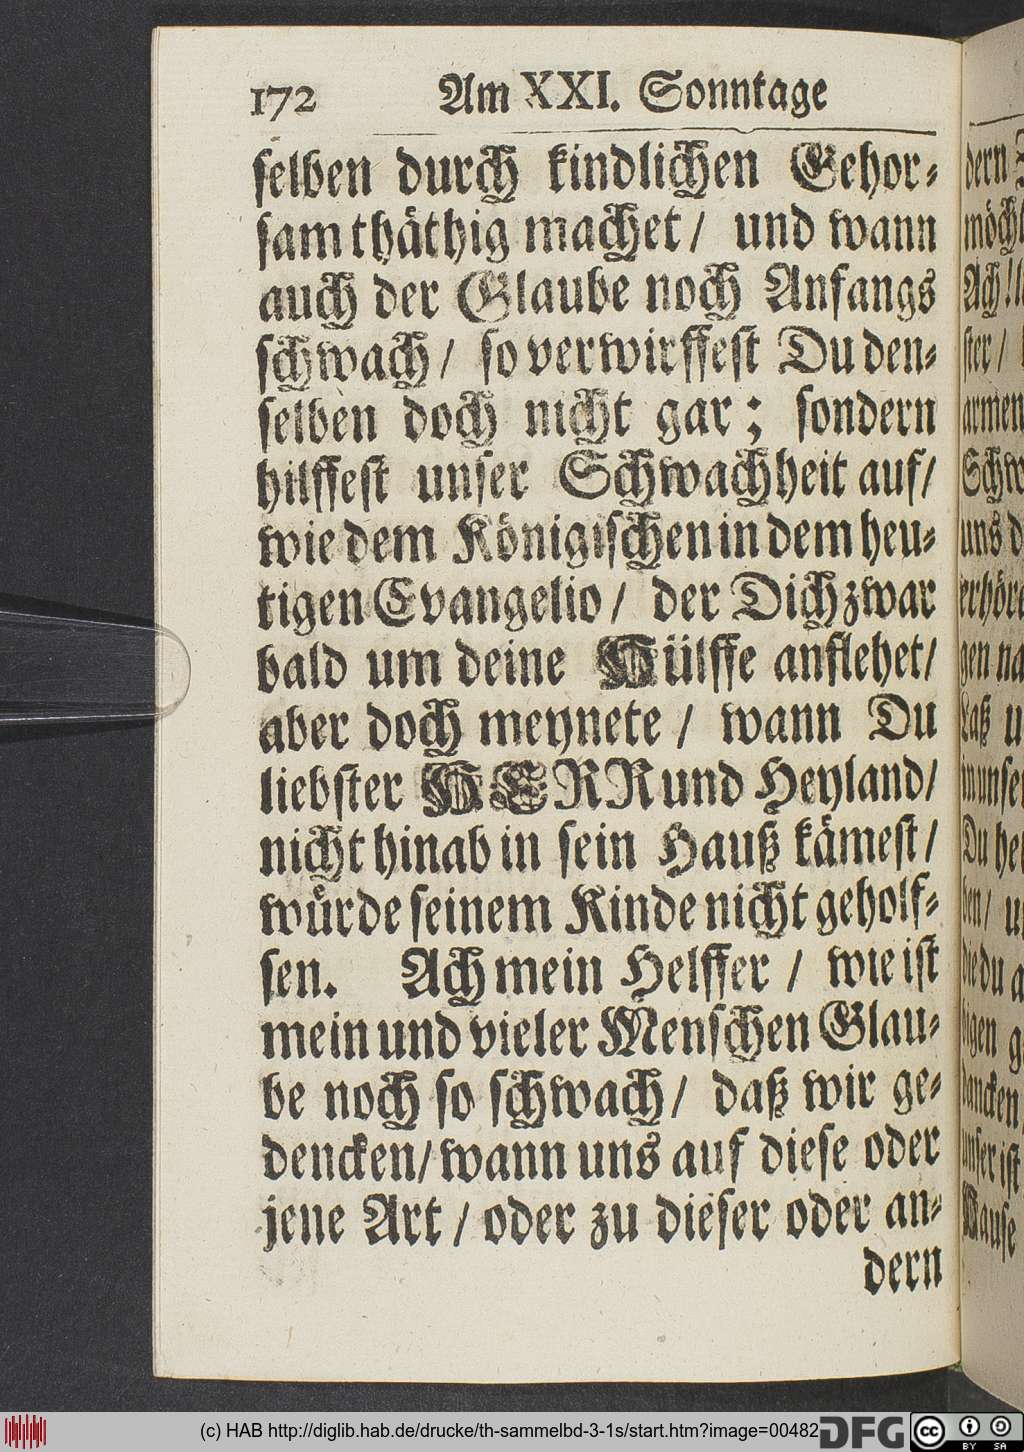 172 Am XXI. Sonntage
selben durch kindlichen Gehor-
sam thäthig machet / und wann
auch der Glaube noch Anfangs
schwach / so verwirffest Du den-
selben doch nicht gar; sondern
hilffest unser Schwachheit auf/
wie dem Königischen in dem heu-
tigen Evangelio / der Dich zwar
bald um deine Hülffe anflehet/
aber doch meynete / wann Du
liebster HERR und Heyland/
nicht hinab in sein Hauß kämest/
würde seinem Kinde nicht geholf-
fen. Ach mein Helffer / wie ist
mein und vieler Menschen Glau-
be noch so schwach / daß wir ge-
dencken/ wann uns auf diese oder
jene Art / oder zu dieser oder an-
dern
dern
möcht
Ach! l
ster /
armen
Schw
uns d
erhöre
gen na
Laß u
in unser
Du hel
ben/ u
die du a
bigen g
dancken
unser ist
(c) HAB http://diglib.hab.de/drucke/th-sammelbd-3-1s/start.htm?image=00482
DFG
cc BY SA